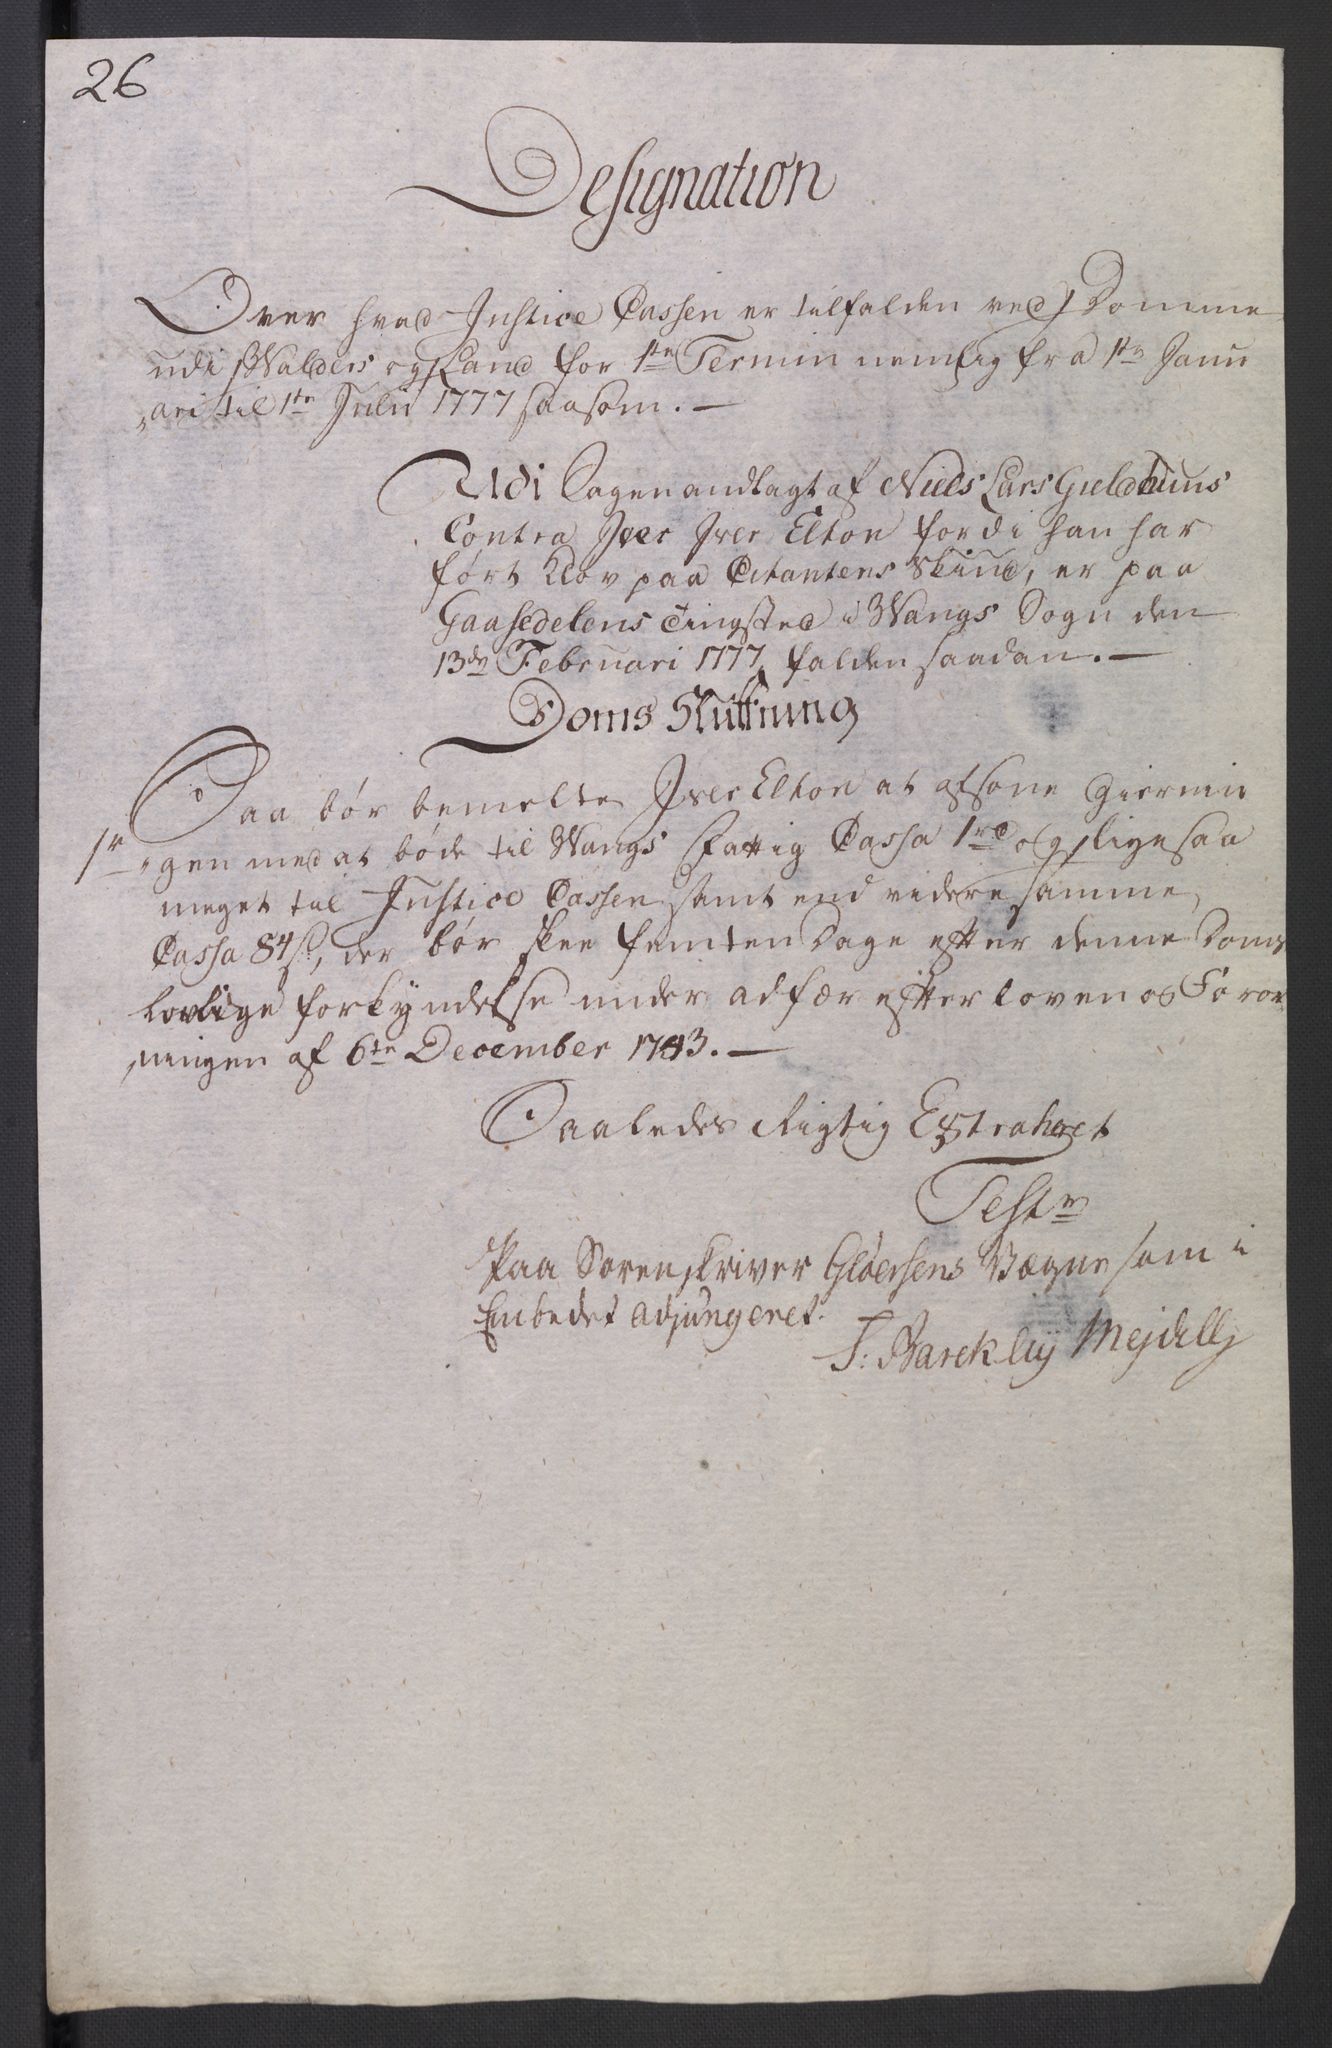 26
Designation
Over hvad Justice Cassen er tilfalden ved Domme
udi Walders og Land for 1te Termin nemlig fra 1te Janu
„ari til 1te Julii 1777 saasom. —
Udi Sagen andlagt af Niels Lars Guldhuus
Contra Iver Iver Elton fordi han har
ført Klov paa Citantens Skind, er paa
Gaasedelens Tingsted i Wangs Sogn den
13de Februari 1777 falden saadan. —
Doms Slutning
Saa bør bemelte Iver Elton at afsone Giernin
1r „gen med at bøde til Wangs Fattig Cassa 1rd og ligesaa
meget til Justice Cassen samt end videre samme
Cassa 84s, der bør skee femten Dage efter denne Doms
lovlige forkyndelse under adfær efter loven og Foror
„ningen af 6te December 1743. —
Saaledes Rigtig Extraheret
Test
Paa Sorenskriver Gløersens Vægne som i
Embedet adjungeret.
T: Barckleij Mejdell